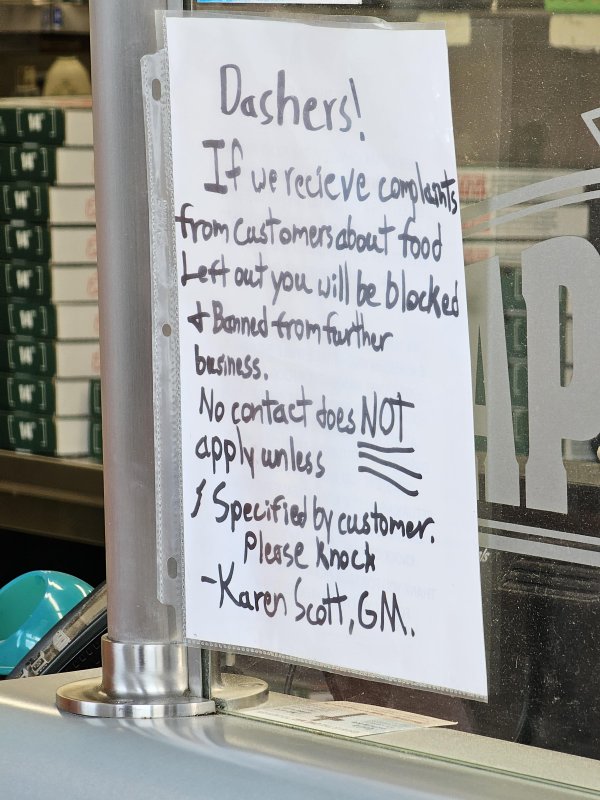 Dashers!
If we recieve complaints
from customers about food
Left out you will be blocked
+ Banned from further
business.
No contact does NOT
apply unless
Specified by customer.
Please Knock
- Karen Scott, GM.
AP